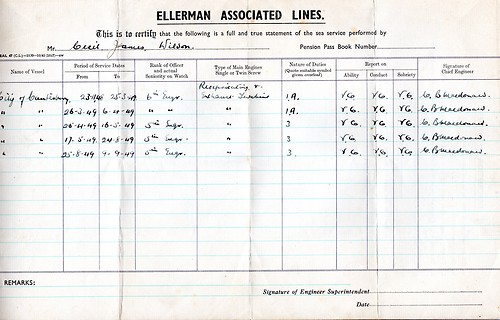 ELLERMAN ASSOCIATED LINES.
This is to certify that the following is a full and true statement of the sea service performed by
Mr. Cecil James Wilson. Pension Pass Book Number
Name of Vessel Period of Service Dates From To Rank of Officer and actual Seniority on Watch Type of Main Engines Single or Twin Screw Nature of Duties (Quote suitable symbol given overleaf) Report on Ability Conduct Sobriety Signature of Chief Engineer
City of 25-3-49 6th Engr. Reciprocating & 1A. V.G. V.G. V.G.
" " 26-3-49 6-4-49 " " " 1A. V.G. V.G. V.G.
" " 26-4-49 16-5-49 5th Engr. " 3 V.G. V.G. V.G.
" " 17-5-49 24-8-49 5th Engr. " 3 V.G. V.G. V.G.
" " 25-8-49 9-9-49 5th Engr. " 3. V.G. V.G. V.G.
REMARKS:
Signature of Engineer Superintendent
Date